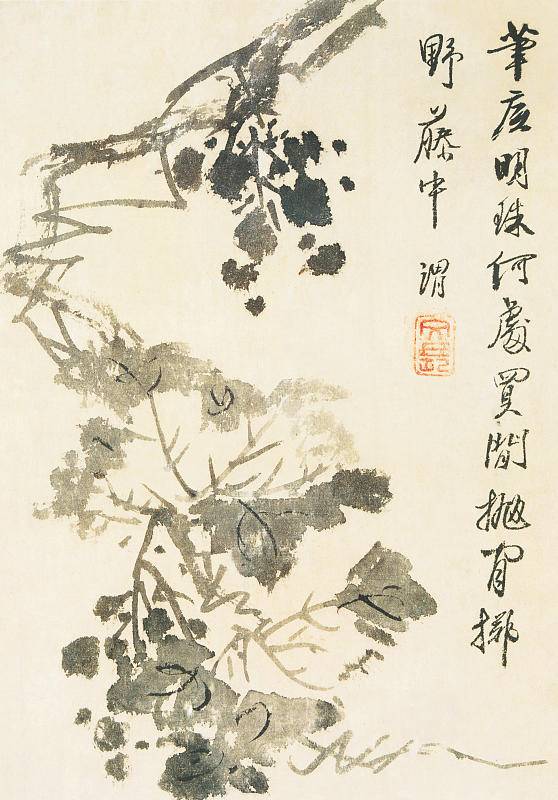 筆底明珠何處買閒抛閒擲
野藤中 渭
文長